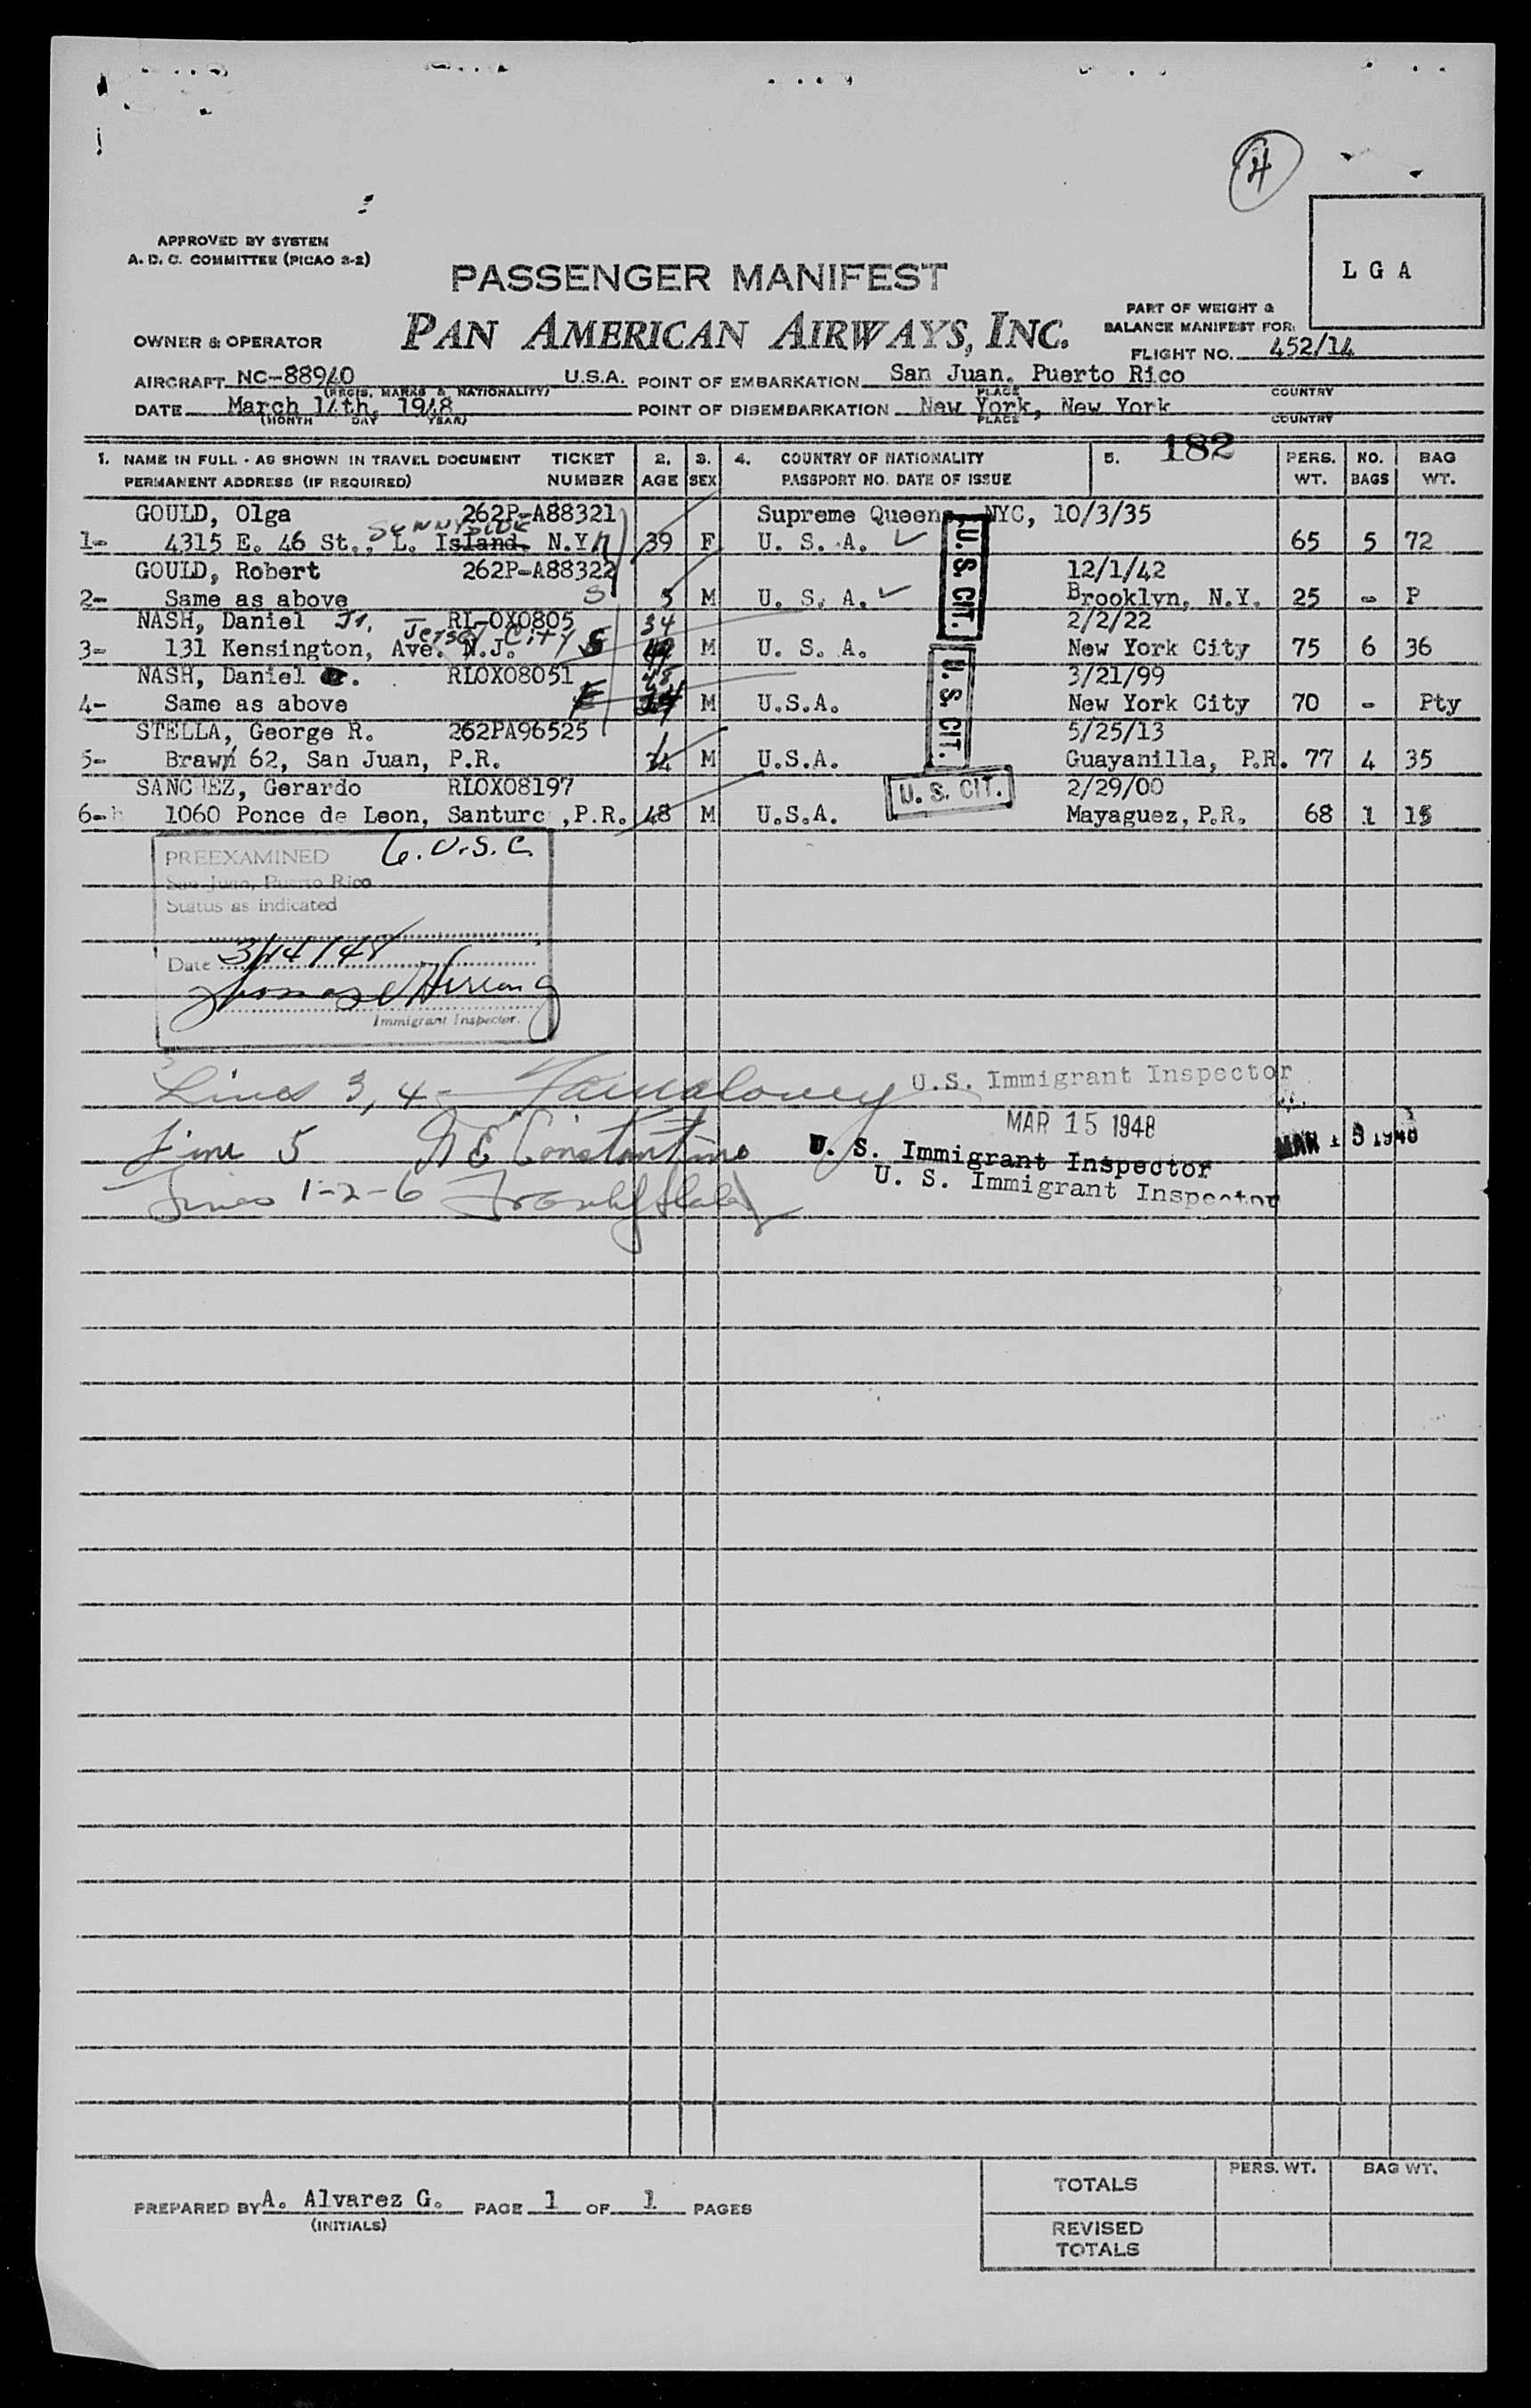 4
APPROVED BY SYSTEM
A. D. C. COMMITTEE (PICAO 2-2)
LGA
PASSENGER MANIFEST
PART OF WEIGHT &
BALANCE MANIFEST FOR:
OWNER & OPERATOR PAN AMERICAN AIRWAYS, INC.
FLIGHT NO. 452/14
AIRCRAFT NC-88940 U.S.A. POINT OF EMBARKATION San Juan, Puerto Rico
(REGIS. MARKS & NATIONALITY) PLACE COUNTRY
DATE March 14th, 1948 POINT OF DISEMBARKATION New York, New York
(MONTH DAY YEAR) PLACE COUNTRY
182
1. NAME IN FULL - AS SHOWN IN TRAVEL DOCUMENT TICKET 2. 3. 4. COUNTRY OF NATIONALITY 5. PERS. NO. BAG
PERMANENT ADDRESS (IF REQUIRED) NUMBER AGE SEX PASSPORT NO. DATE OF ISSUE WT. BAGS WT.
GOULD, Olga 262P-A88321 Supreme Queens, NYC, 10/3/35
SUNNYSIDE
1- 4315 E. 46 St., L. Island. N.Y. 39 F U. S. A. 65 5 72
U. S. CIT.
GOULD, Robert 262P-A88322 12/1/42
2- Same as above S 5 M U. S. A. Brooklyn, N.Y. 25 - P
NASH, Daniel Jr. RL-OX0805 34 2/2/22
Jersey City
3- 131 Kensington, Ave. N.J. S M U. S. A. New York City 75 6 36
U. S. CIT.
NASH, Daniel RLOX08051 48 3/21/99
4- Same as above M U.S.A. New York City 70 - Pty
STELLA, George R. 262PA96525 5/25/13
5- Brawn 62, San Juan, P.R. M U.S.A. Guayanilla, P.R. 77 4 35
SANCHEZ, Gerardo RLOX08197 2/29/00
U. S. CIT.
6- 1060 Ponce de Leon, Santurc ,P.R. 48 M U.S.A. Mayaguez, P.R. 68 1 15
PREEXAMINED 6. U.S.C.
San Juan, Puerto Rico
Status as indicated
Date 3/14/48
Immigrant Inspector.
Lines 3, 4- U.S. Immigrant Inspector
MAR 15 1948
Line 5 N E Constantino U. S. Immigrant Inspector MAR 15 1948
Lines 1-2-6 U. S. Immigrant Inspector
TOTALS PERS. WT. BAG WT.
PREPARED BY A. Alvarez G. PAGE 1 OF 1 PAGES
(INITIALS)
REVISED
TOTALS